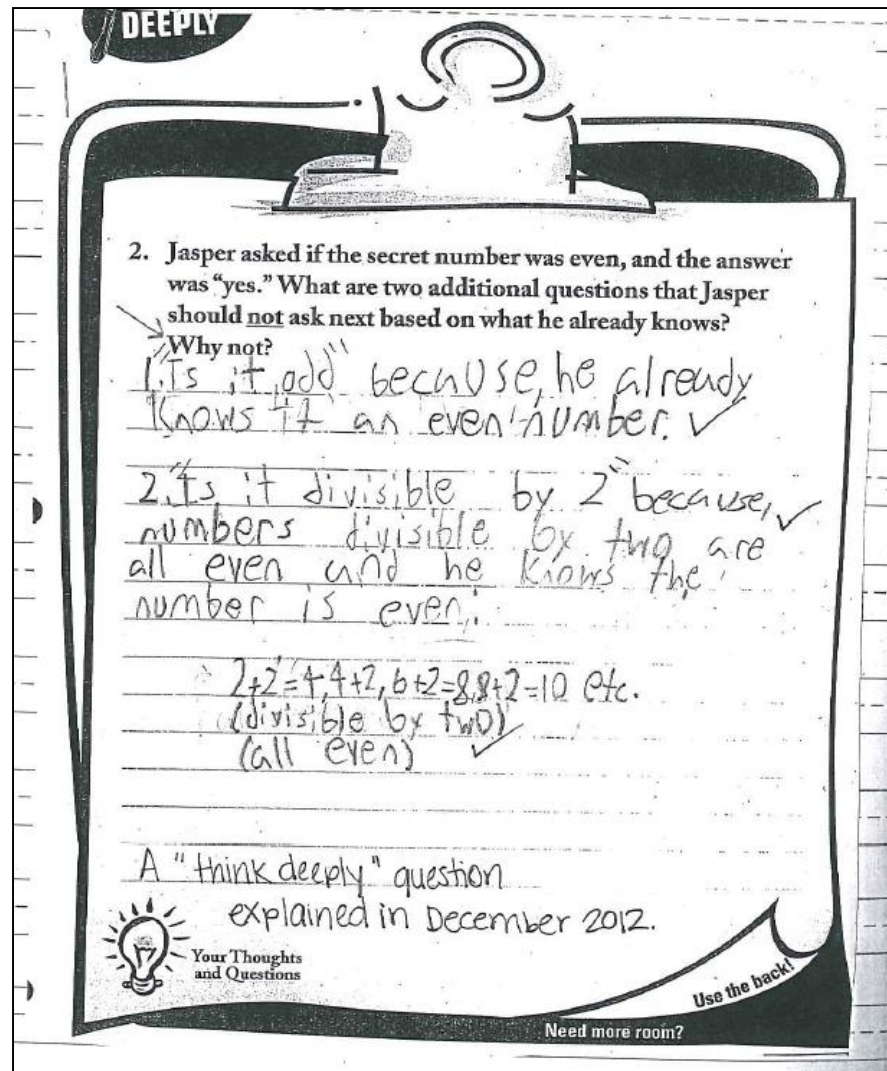 DEEPLY
2. Jasper asked if the secret number was even, and the answer
was “yes.” What are two additional questions that Jasper
should not ask next based on what he already knows?
Why not?
1. "Is it odd" because, he already
knows it an even number. ✓
2. "Is it divisible by 2" because, ✓
numbers divisible by two are
all even and he knows the
number is even.
2+2=4, 4+2, 6+2=8, 8+2=10 etc.
(divisible by two)
(all even) ✓
A "think deeply" question
explained in December 2012.
Your Thoughts
and Questions
Use the back!
Need more room?